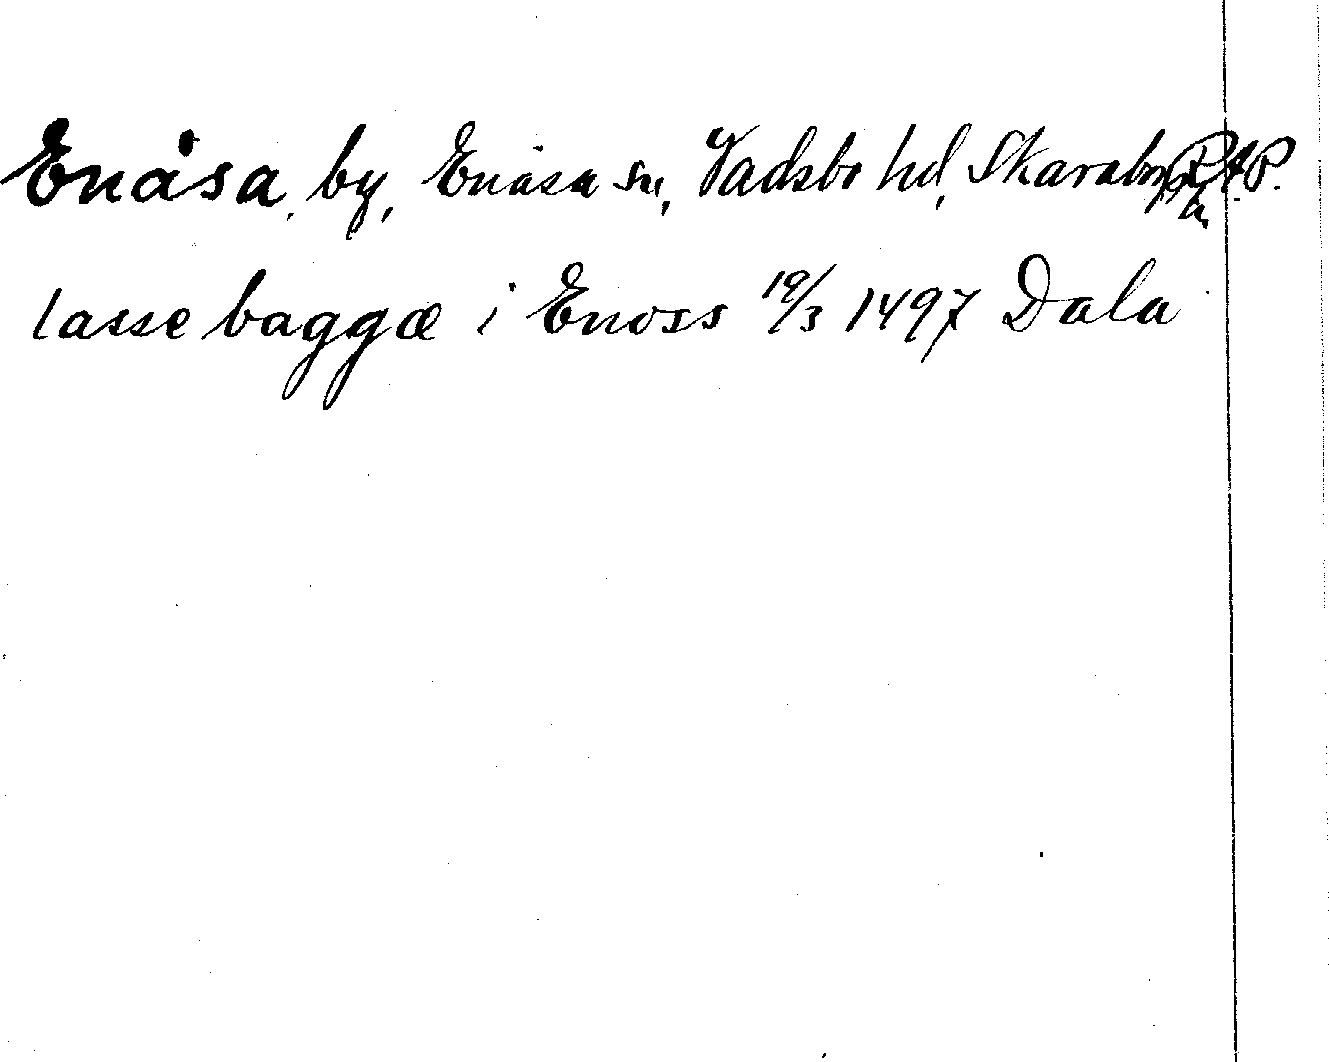 Enåsa, by, Enåsa sn, Vadsbo hd, Skarabgs l. RAP.
lasse baggæ i Enoss 19/3 1497 Dala